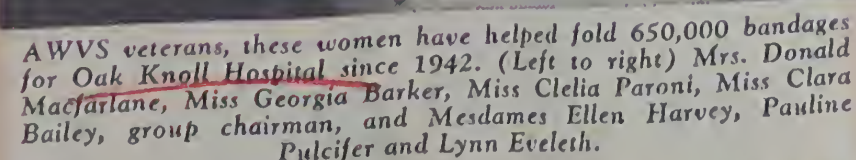 AWVS veterans, these women have helped fold 650,000 bandages
for Oak Knoll Hospital since 1942. (Left to right) Mrs. Donald
Macfarlane, Miss Georgia Barker, Miss Clelia Paroni, Miss Clara
Bailey, group chairman, and Mesdames Ellen Harvey, Pauline
Pulcifer and Lynn Eveleth.